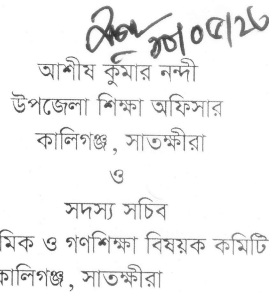 ২০/০৫/২৬
আশীষ কুমার নন্দী
উপজেলা শিক্ষা অফিসার
কালিগঞ্জ, সাতক্ষীরা
ও
সদস্য সচিব
মিক ও গণশিক্ষা বিষয়ক কমিটি
কালিগঞ্জ, সাতক্ষীরা